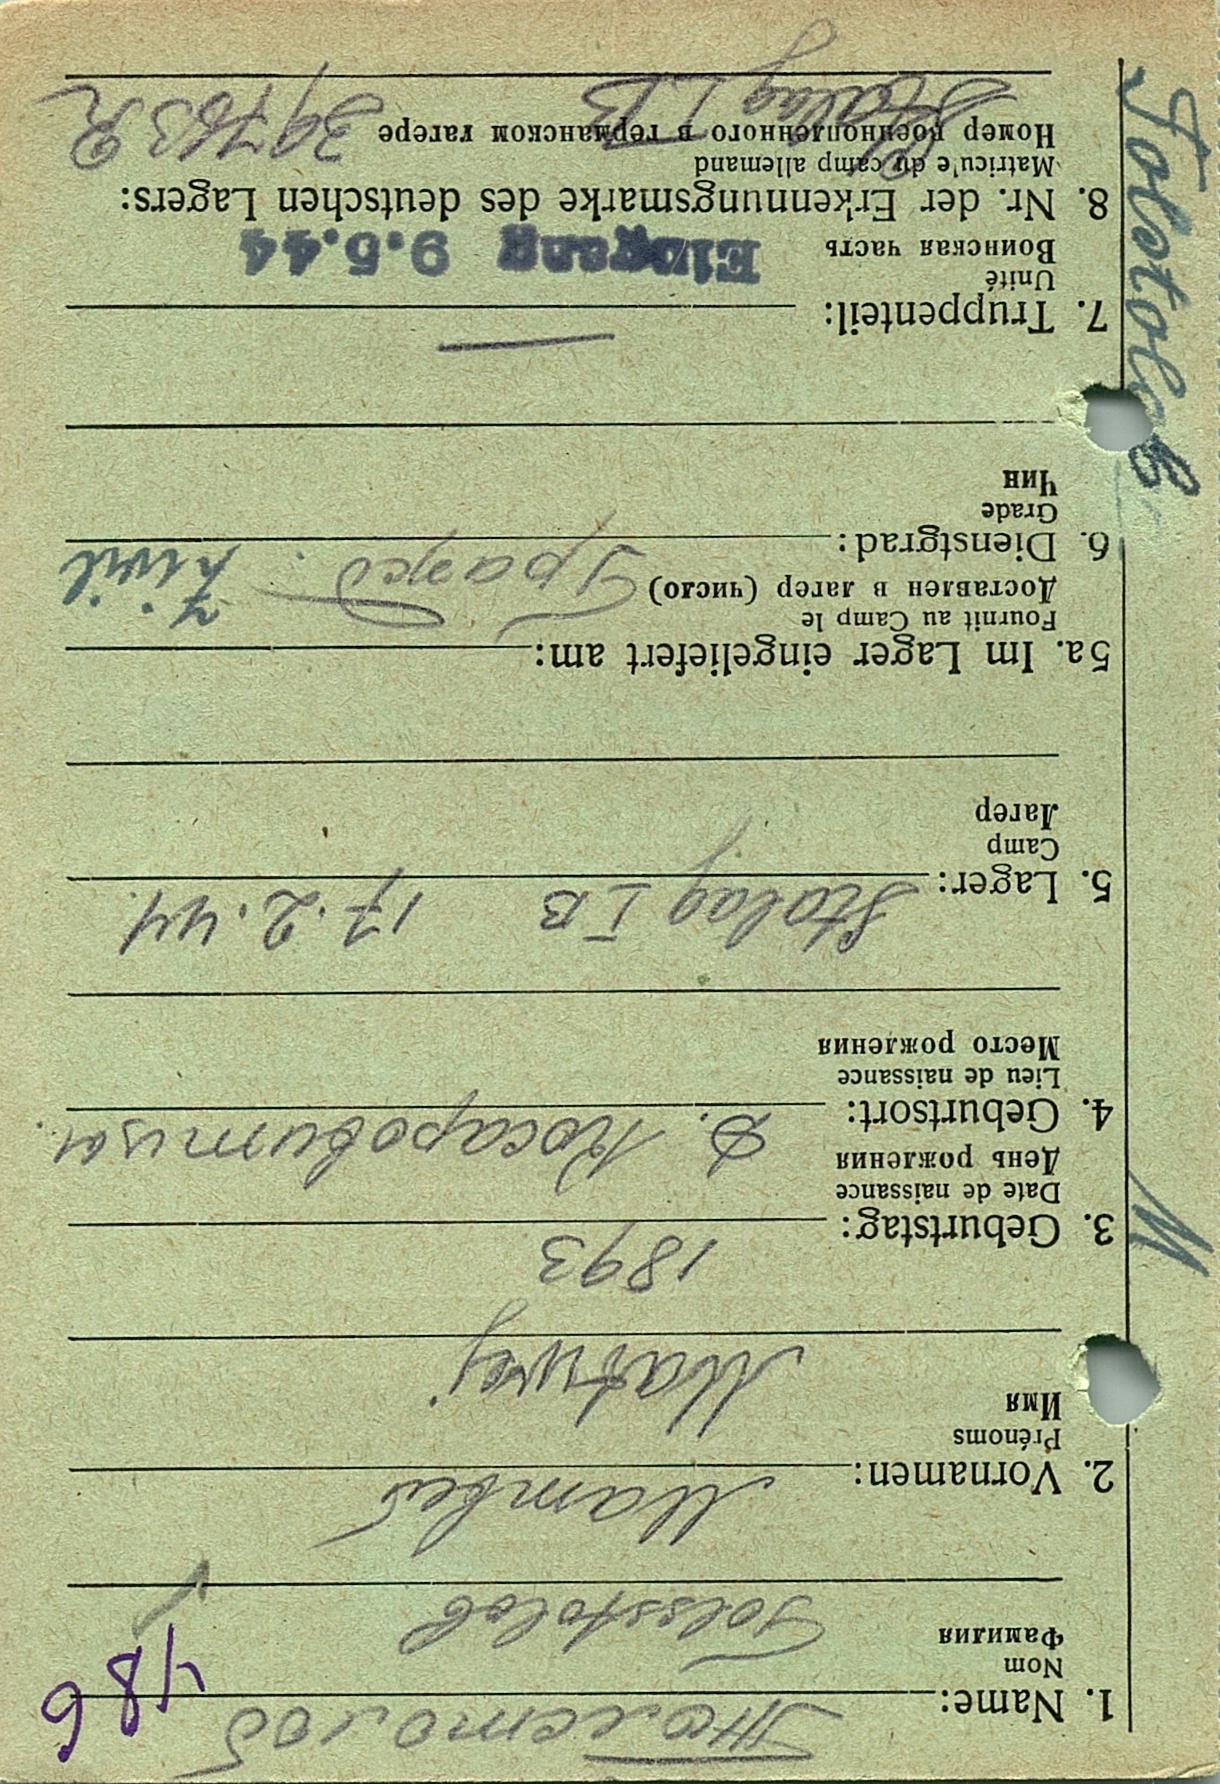 Толстолоб 486
1. Name:
Nom
Фамилия
Tolsstolob
Матвей
2. Vornamen:
Prénoms
Имя
Matwej
1893
3. Geburtstag:
Date de naissance
День рождения
4. Geburtsort:
Lieu de naissance
Место рождения
Stalag I B 17.2.44.
5. Lager:
Camp
Лагерь
5a. Im Lager eingeliefert am:
Fournit au Camp le
Доставлен в лагер (число)
Гражд. Zivil
6. Dienstgrad:
Grade
Чин
7. Truppenteil:
Unité
Воинская часть
Eingang 9.5.44
8. Nr. der Erkennungsmarke des deutschen Lagers:
Matricule du camp allemand
Номер военнопленного в германском лагере
Stalag I B
M